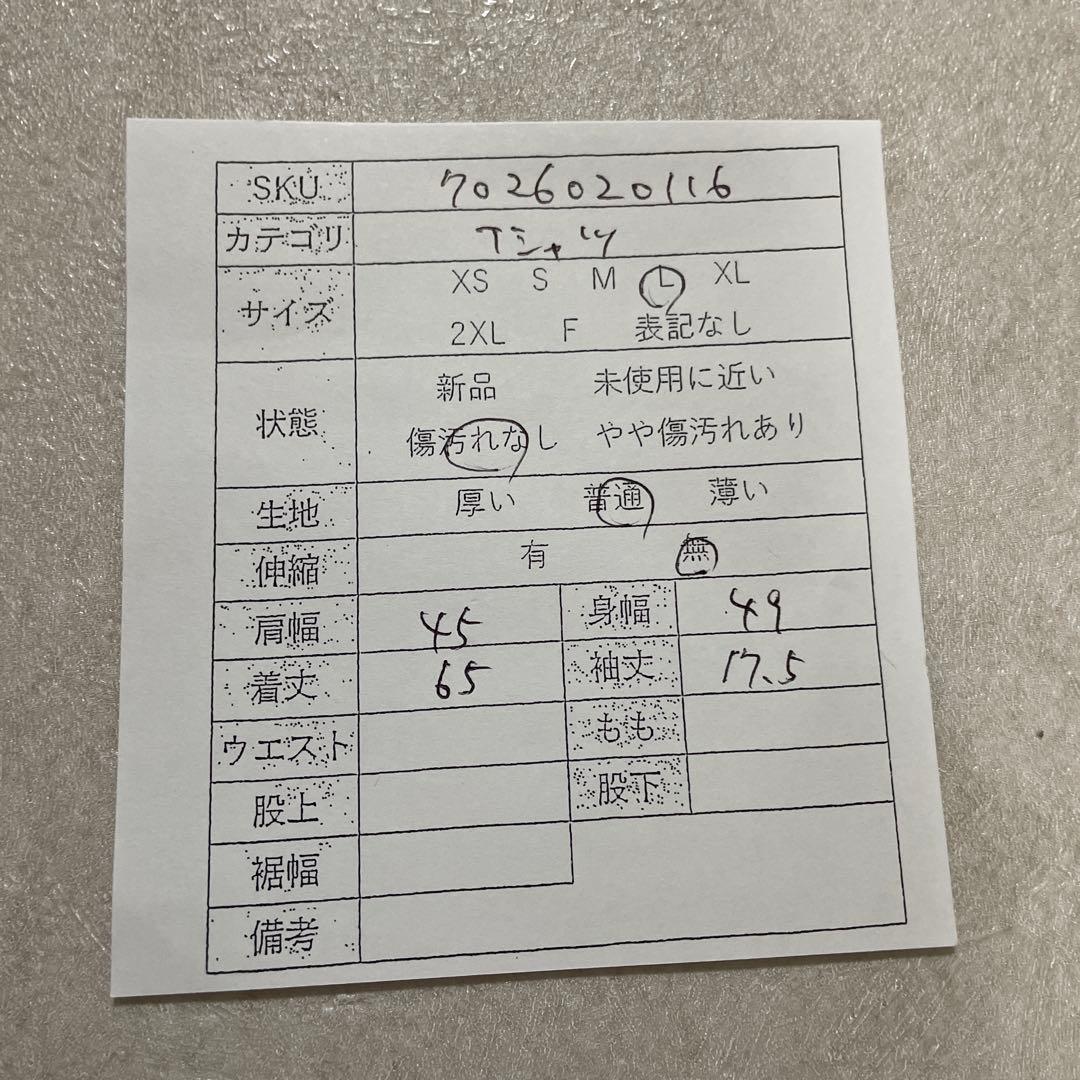 SKU 7026020116
カテゴリ Tシャツ
サイズ XS S M L XL
2XL F 表記なし
状態 新品 未使用に近い
傷汚れなし やや傷汚れあり
生地 厚い 普通 薄い
伸縮 有 無
肩幅 45 身幅 49
着丈 65 袖丈 17.5
ウエスト もも
股上 股下
裾幅
備考